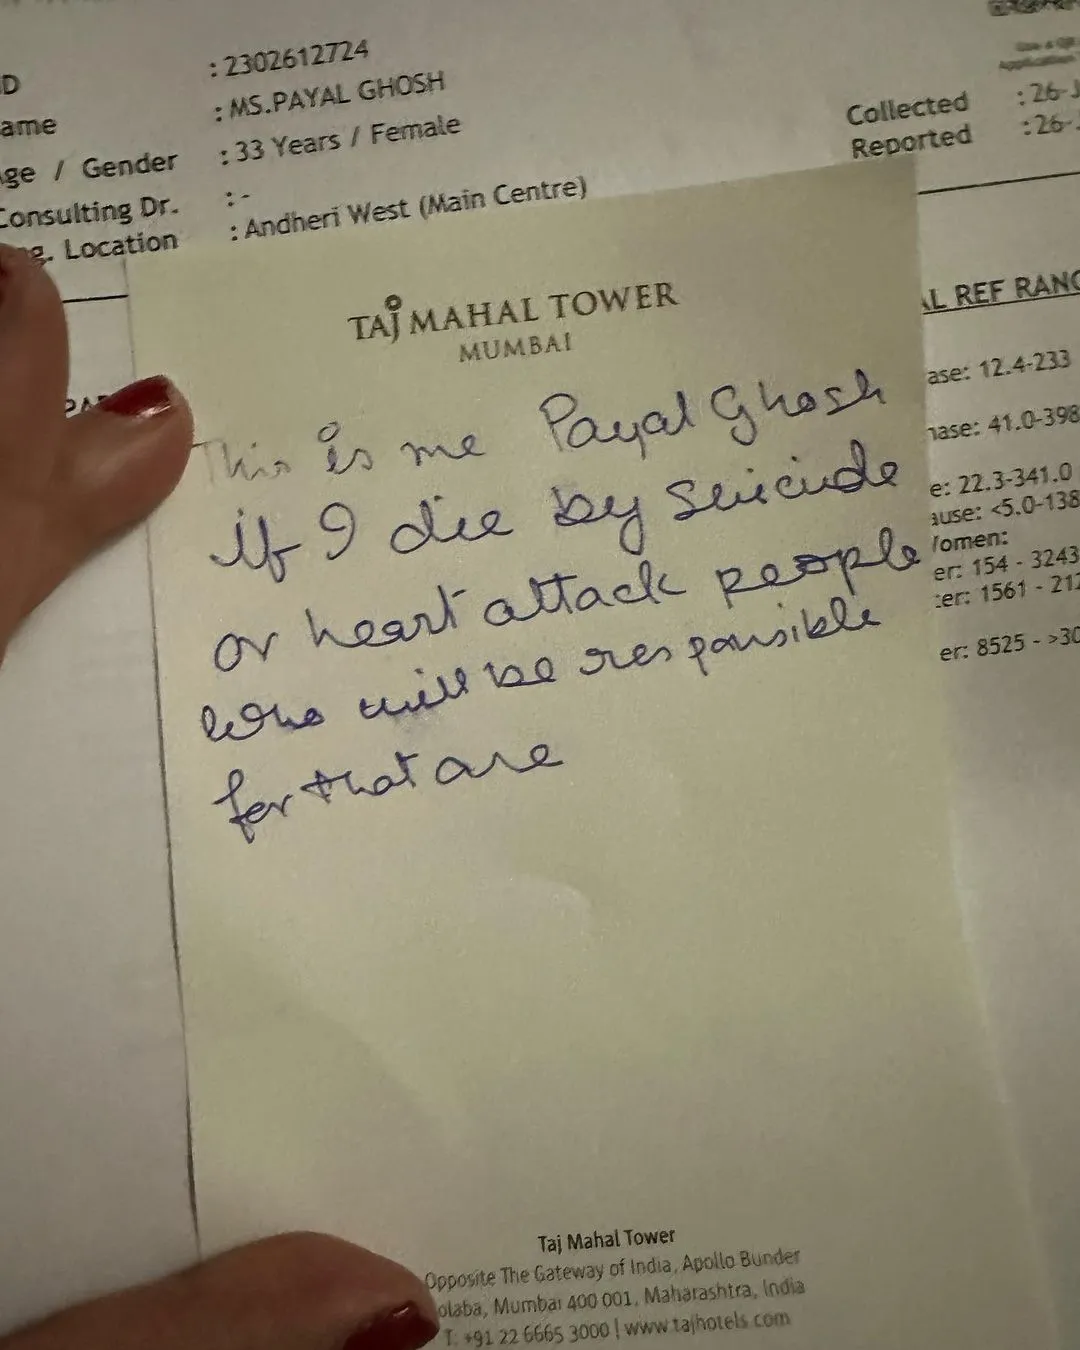 : 2302612724
: MS.PAYAL GHOSH
ame
Collected : 26-
ge / Gender : 33 Years / Female
Reported : 26-
Consulting Dr. : -
g. Location : Andheri West (Main Centre)
TAJ MAHAL TOWER
MUMBAI
AL REF RANG
This is me Payal Ghosh
if I die by suicide
or heart attack people
who will be responsible
for that are
ase: 12.4-233
hase: 41.0-398
e: 22.3-341.0
ause: <5.0-138
omen:
er: 154 - 3243
ter: 1561 - 212
er: 8525 - >30
Taj Mahal Tower
Opposite The Gateway of India, Apollo Bunder
olaba, Mumbai 400 001, Maharashtra, India
T: +91 22 6665 3000 | www.tajhotels.com